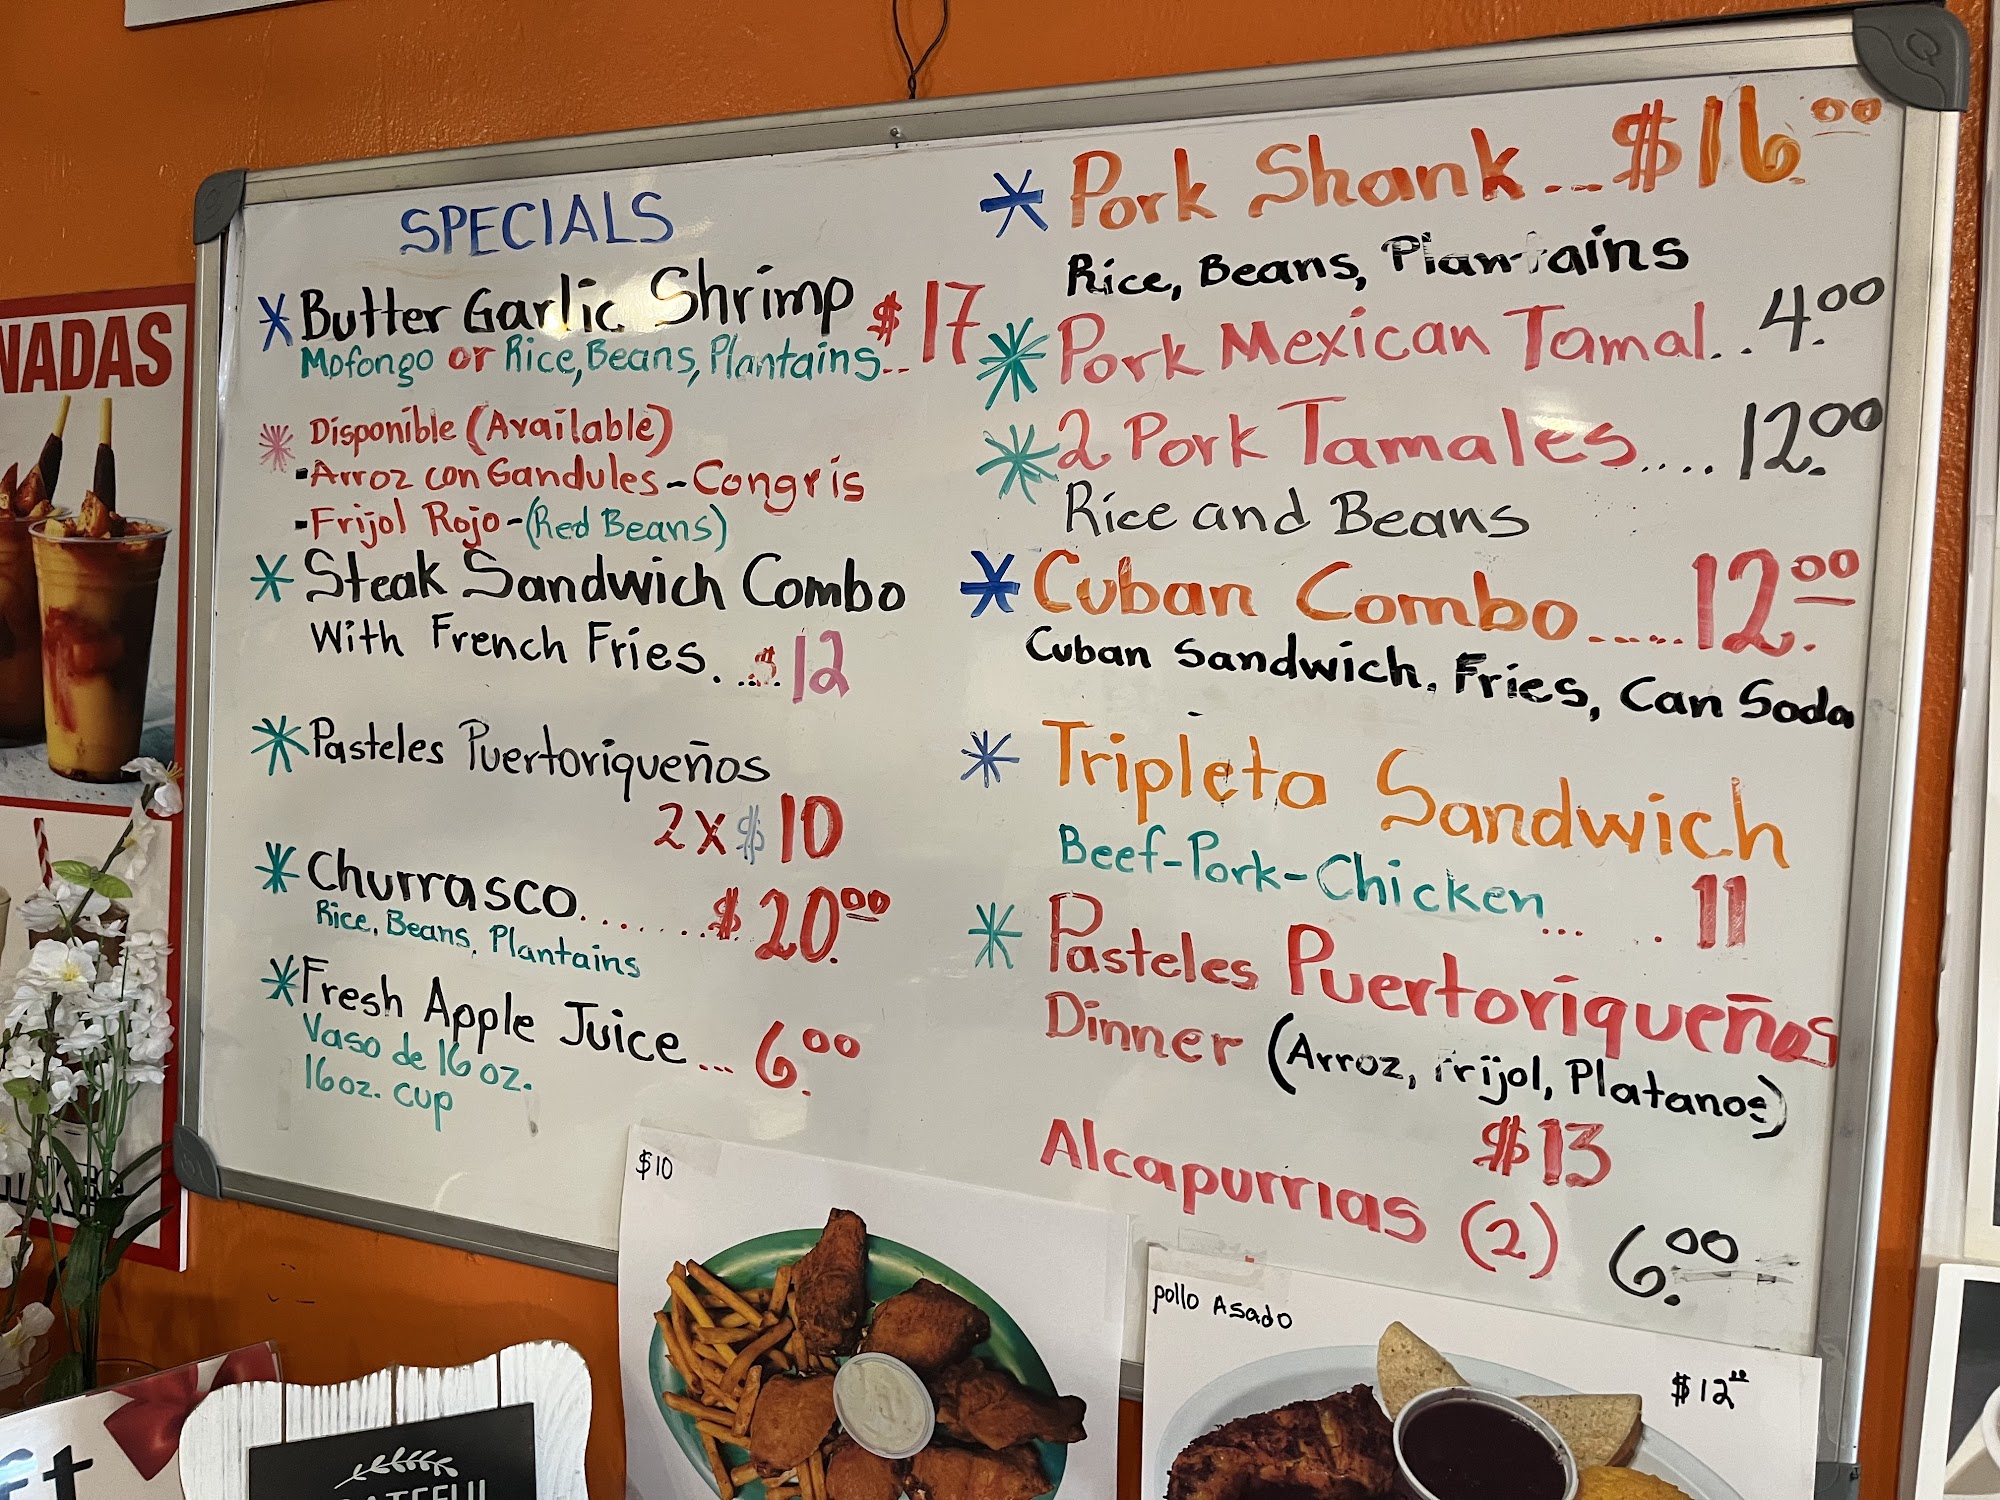 SPECIALS
Butter Garlic Shrimp
Mofongo or Rice, Beans, Plantains.. $17
Disponible (Available)
-Arroz con Gandules-Congris
-Frijol Rojo-(Red Beans)
Steak Sandwich Combo
With French Fries. ... $12
Pasteles Puertoriqueños
2x$10
Churrasco........ $20.00
Rice, Beans, Plantains
Fresh Apple Juice... 6.00
Vaso de 16 oz.
16oz. cup
Pork Shank...$16.00
Rice, Beans, Plantains
Pork Mexican Tamal..4.00
2 Pork Tamales....12.00
Rice and Beans
Cuban Combo.....12.00
Cuban Sandwich, Fries, Can Soda
Tripleta Sandwich
Beef-Pork-Chicken... . 11
Pasteles Puertoriqueños
Dinner (Arroz, Frijol, Platanos)
$13
Alcapurrias (2) 6.00
NADAS
$10
pollo Asado
$12